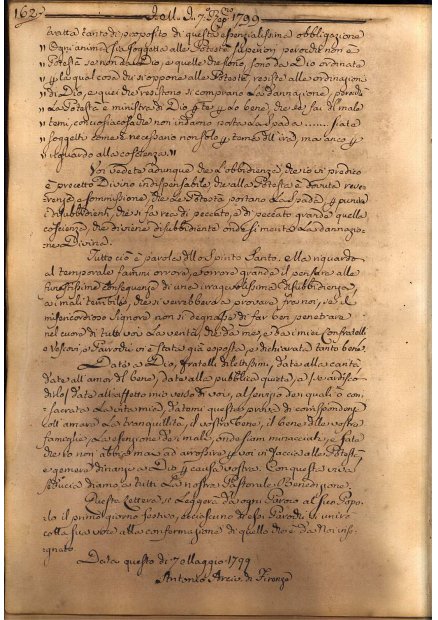 162.
1799
tratta tanto di proposito di questa essenzialissima obbligazione
" Ogni anima sia soggetta alle Potestà superiori perocchè non è
" Potestà se non da Dio, e quelle che sono, sono da Dio ordinate
" la qual cosa chi si oppone alle Potestà, resiste alle ordinazioni
" di Dio, e quei che resistono si comprano la dannazione, perchè
" La Potestà è ministra di Dio p te p lo bene, che se fai di male
" temi, conciosiacosachè non indarno porta la spada siate
" soggetti come è necessario non solo p tema dell'ira, ma anco p
" riguardo alla coscienza "
Voi vedete adunque che l'obbidienza, che io vi predico
è precetto Divino indispensabile, che alla Potestà è dovuta reve-
renza e sommissione, che le Potestà portano la spada p punire
i disubbidienti, che si fa reo di peccato, e di peccato grande quella
coscienza, che diviene disubbidiente onde si merita la dannazio-
ne Divina.
Tutto ciò è parola dello Spirito Santo. Ella riguardo
al temporale fammi orrore, e orrore grande il pensare alle
funestissime conseguenze di una irragionevolissima disubbidienza,
ai mali terribili, che si verrebbero a provare fra noi, se il
misericordioso Signore non si degnasse di far ben penetrare
nel cuore di tutti voi la verità, che da me, e da i miei confratelli
e Vescovi, e Parochi vi è stata già esposta, e dichiarata tanto bene.
Date a Dio, fratelli dilettissimi, date alla carità,
date all'amor del bene, date alla pubblica quiete, e
date all'affetto mio verso di voi, al servizio dei quali ò con-
sacrata la vita mia, datemi queste prove di corrispondenza
coll'amare la tranquillità, il vostro bene, il bene delle vostre
famiglie, la esenzione da i mali, onde siam minacciati, e fate
che io non abbia mai ad arrossire p voi in faccia alle Potestà
e gemere dinanzi a Dio p causa vostra. Con questa viva
fiducia diamo a tutti la nostra Pastorale Benedizione.
Questa Lettera si leggerà da ogni Paroco al suo Popo-
lo il primo giorno festivo, e ciascuno di essi Parochi si unirà
colla sua voce alla confermazione di quello che è da Noi inse-
gnato.
Data questo dì 7 Maggio 1799
Antonio Arciv. di Firenze